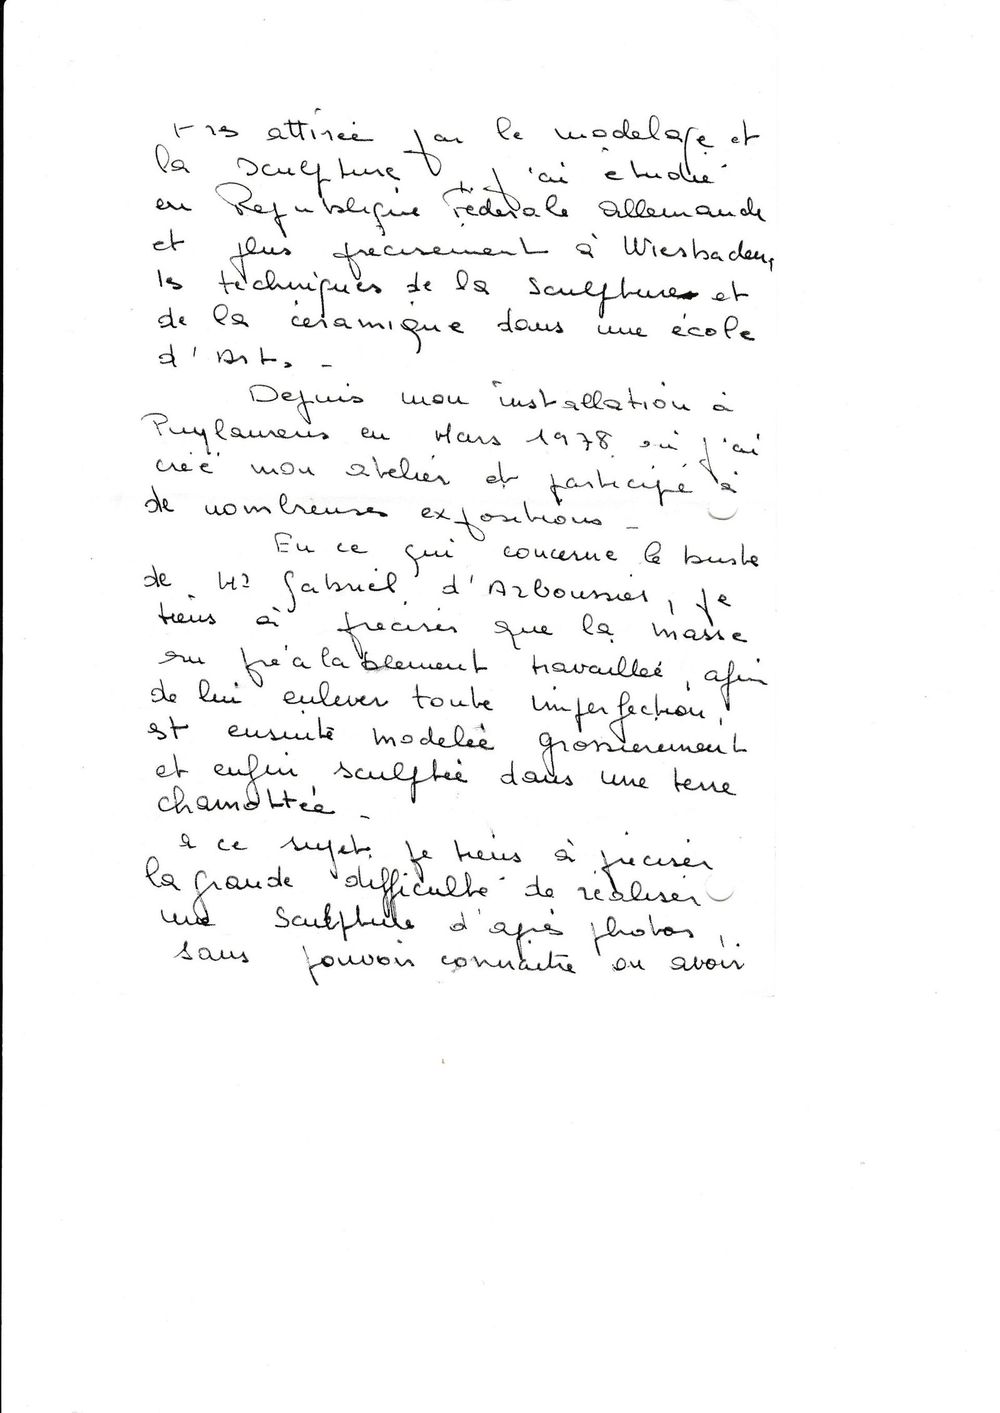 très attirée par le modelage et
la sculpture, j'ai étudié
en République Fédérale allemande
et plus précisement à Wiesbaden,
les techniques de la sculpture et
de la céramique dans une école
d'Art. -
Depuis mon installation à
Puylaurens en Mars 1978 où j'ai
créé mon atelier et participé à
de nombreuses expositions -
En ce qui concerne le buste
de Mr Gabriel d'Arboussier, je
tiens à préciser que la masse
préalablement travaillée, afin
de lui enlever toute imperfection,
est ensuite modelée grossierement
et enfin sculptée dans une terre
chamottée -
à ce sujet je tiens à préciser
la grande difficulté de réaliser
une sculpture d'après photos,
sans pouvoir connaitre ou avoir